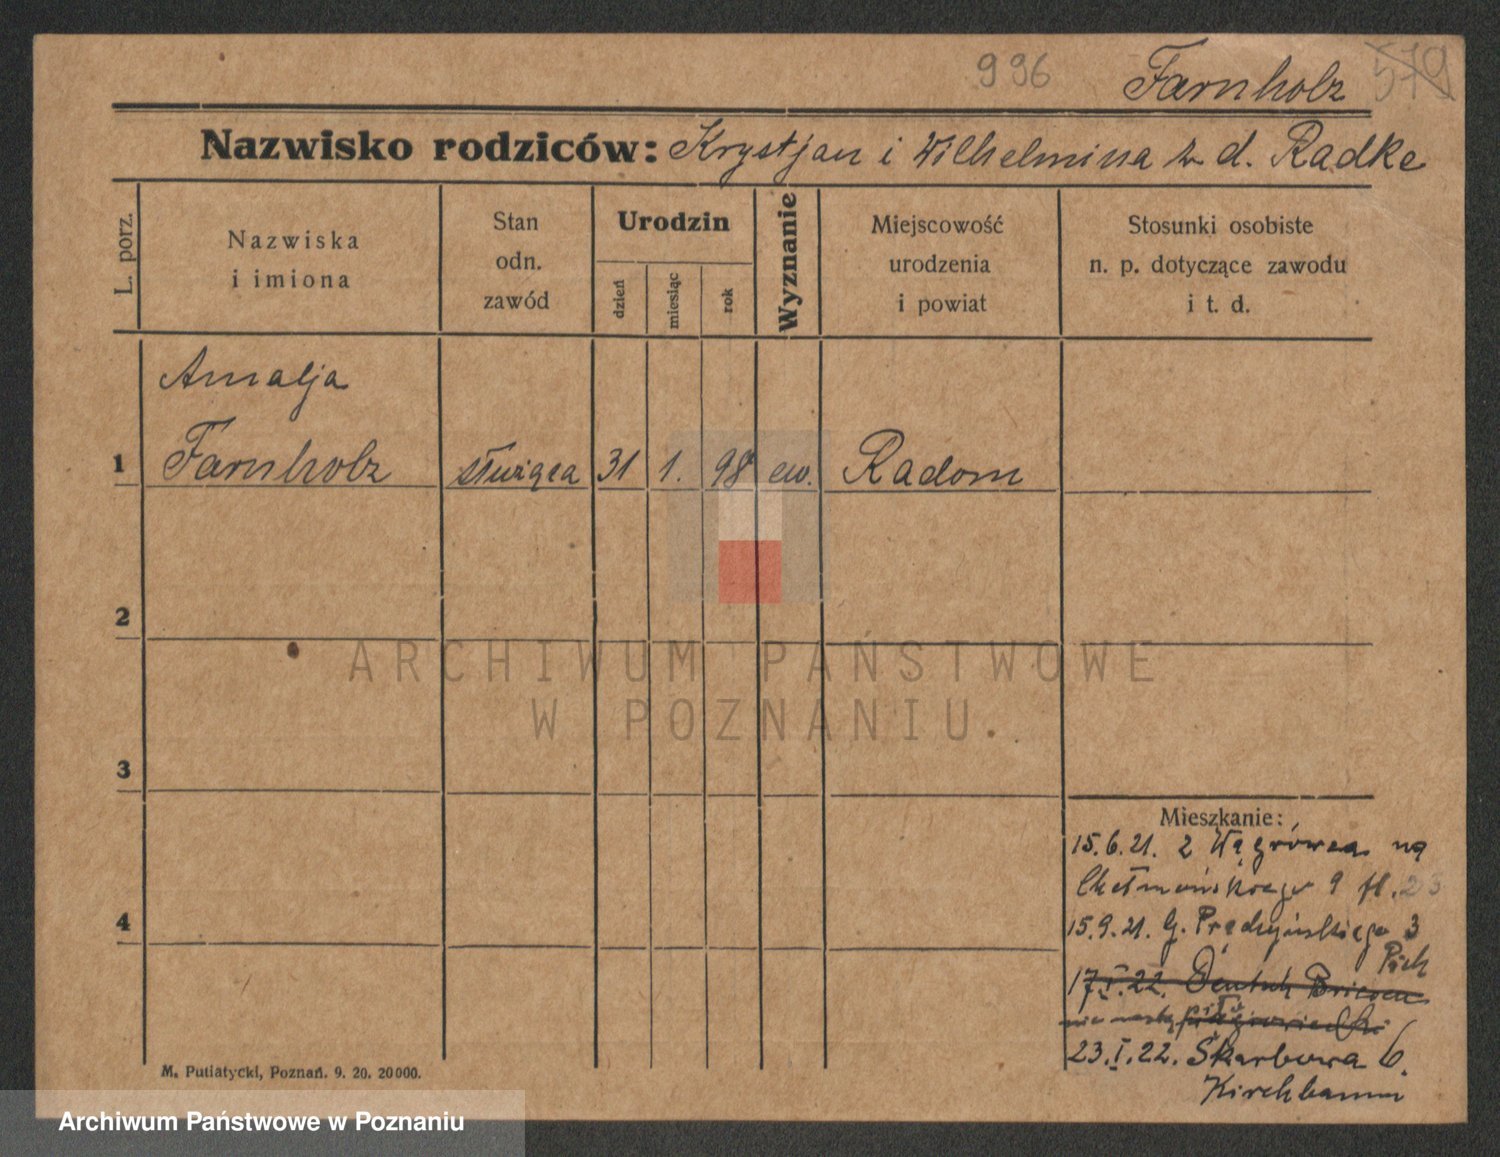 996 Farnholz 579
Nazwisko rodziców: Krystjan i Wilhelmina z d. Radke
L. porz.
Nazwiska
i imiona
Stan
odn.
zawód
Urodzin
dzień
miesiąc
rok
Wyznanie
Miejscowość
urodzenia
i powiat
Stosunki osobiste
n. p. dotyczące zawodu
i t. d.
Amalja
1 Farnholz służąca 31 1. 98 ew. Radom
2
ARCHIWUM PAŃSTWOWE
W POZNANIU
3
Mieszkanie:
15.6.21. z Wągrówca na
Chełmońskiego 9 23
4
15.9.21. G. Prądzyńskiego 3
17.I.22. Deutsch
23.I.22. Skarbowa 6.
M. Putiatycki, Poznań. 9. 20. 20000.
Archiwum Państwowe w Poznaniu